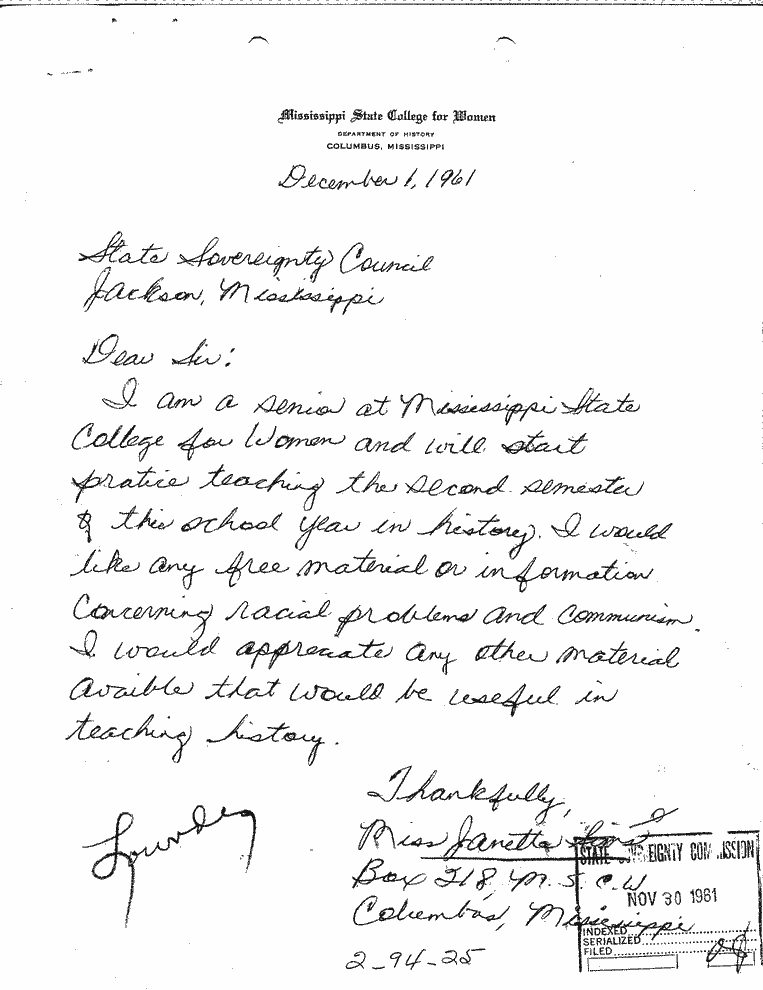 Mississippi State College for Women
DEPARTMENT OF HISTORY
COLUMBUS, MISSISSIPPI
December 1, 1961
State Sovereignty Council
Jackson, Mississippi
Dear Sir:
I am a senior at Mississippi State
College for Women and will start
pratice teaching the second semester
of this school year in history. I would
like any free material or information
concerning racial problems and communism.
I would appreciate any other material
avaible that would be useful in
teaching history.
Thankfully,
Miss Janetta
Lowndes
Box 218, M. S. C. W.
Columbus, Mississippi
2-94-25
STATE SOVEREIGNTY COMMISSION
NOV 30 1961
INDEXED
SERIALIZED
FILED